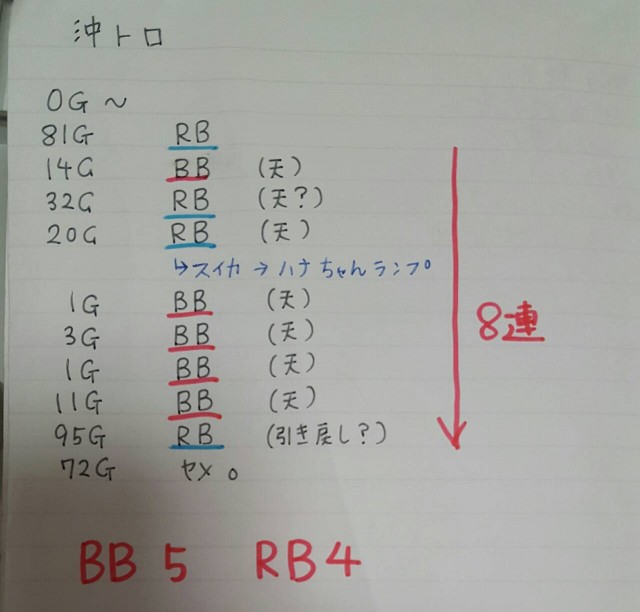 沖トロ
0G～
81G RB
14G BB (天)
32G RB (天?)
20G RB (天)
↳スイカ→ハナちゃんランプ。
1G BB (天)
3G BB (天)
1G BB (天)
11G BB (天)
95G RB (引き戻し?)
72G ヤメ。
8連
BB 5 RB 4